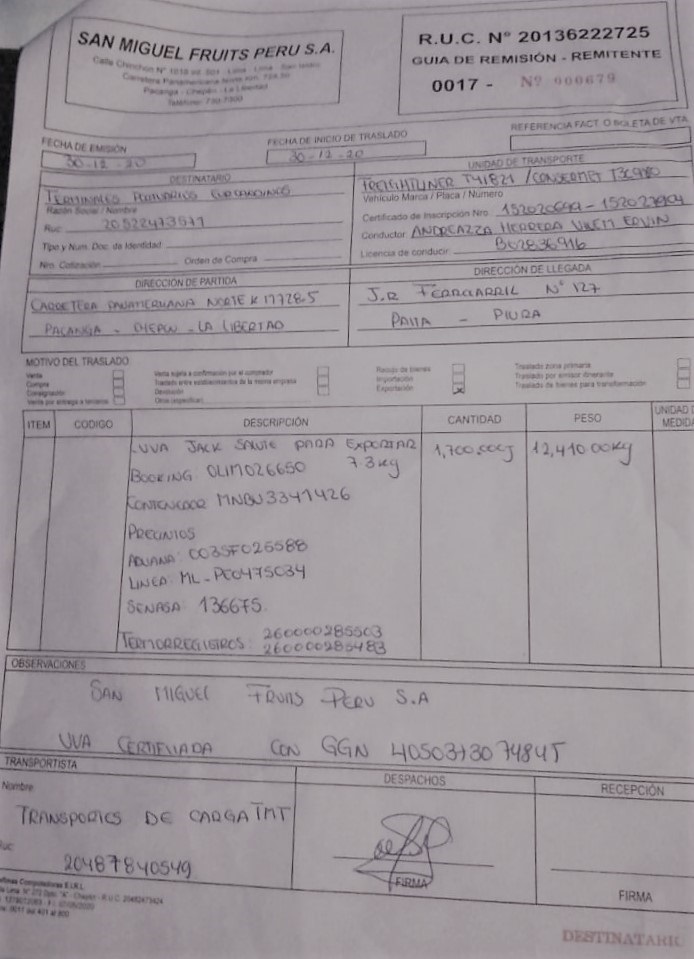 SAN MIGUEL FRUITS PERU S.A.
Calle Chinchon N° 1018 Int. 501 - Lima - Lima - San Isidro
Carretera Panamericana Norte Km.
Pacanga - Chepén - La Libertad
R.U.C. N° 20136222725
GUIA DE REMISIÓN - REMITENTE
0017 - Nº 000679
FECHA DE EMISIÓN
30-12-20
FECHA DE INICIO DE TRASLADO
30-12-20
REFERENCIA FACT. O BOLETA DE VTA.
DESTINATARIO
TERMINALES PORTUARIOS EUROANDINOS
Razón Social / Nombre
Ruc:
Tipo y Num. Doc. de Identidad:
Nro. Cotización: Orden de Compra
UNIDAD DE TRANSPORTE
FREIGHTLINER T4I821 /
Vehículo Marca / Placa / Número
Certificado de Inscripción Nro.
Conductor: ANDREAZZA HERRERA ERVIN
Licencia de conducir: B02836916
DIRECCIÓN DE PARTIDA
CARRETERA PANAMERICANA NORTE
PACANGA - CHEPEN - LA LIBERTAD
DIRECCIÓN DE LLEGADA
J.R FERROCARRIL N° 127
PAITA - PIURA
MOTIVO DEL TRASLADO
Venta
Compra
Consignación
Venta por entrega a terceros
Venta sujeta a confirmación por el comprador
Traslado entre establecimientos de la misma empresa
Devolución
Otros (especificar)
Recojo de bienes
Importación
Exportación
Traslado zona primaria
Traslado por emisor itinerante
Traslado de bienes para transformación
ITEM CODIGO DESCRIPCIÓN CANTIDAD PESO UNIDAD DE MEDIDA
UVA JACK SALUTE PARA EXPORTAR 1,700.00CJ 12,410.00Kg
BOOKING: OLIM026650 7.3Kg
CONTENEDOR MNBU3341426
PRECINTOS
ADUANA: 003SF025588
LINEA: ML-PE0475034
SENASA: 136675.
TERMORREGISTROS: 260000285503
260000285483
OBSERVACIONES
SAN MIGUEL FRUITS PERU S.A
UVA CERTIFICADA CON GGN
TRANSPORTISTA
Nombre
TRANSPORTES DE CARGA TMT
Ruc:
20487840549
DESPACHOS
FIRMA
RECEPCIÓN
FIRMA
DESTINATARIO